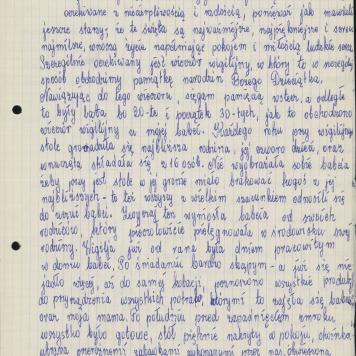 oczekiwane z niecierpliwością i radością, ponieważ jak mawiali
jeszcze starzy; że te święta są najważniejsze, najpiękniejsze i
najmilsze, wnoszą życie napełniając pokojem i miłością ludzkie serca.
Szczególnie oczekiwany jest wieczór wigilijny, w który to w
sposób obchodzimy pamiątkę narodzin Bożego Dzieciątka.
Nawiązując do tego wieczoru, sięgam pamięcią wstecz, a odległe
to były lata bo 20-te i początek 30-tych, jak to obchodzono
wieczór wigilijny u mojej babci. Każdego roku przy wigilijnym
stole gromadziła się najbliższa rodzina, jej dzieci, oraz
wnuczęta składała się z 16 osób. Nie wyobrażała sobie babcia
żeby przy jej stole w jej gronie miało brakować kogoś z jej
najbliższych - to też wszyscy z wielkim szacunkiem odnosili się
do naszej babci. Zwyczaj ten wyniosła babcia od swoich
rodziców, który pieczołowicie pielęgnowała w środowisku swej
rodziny. Wigilja już od rana była dniem pracowitym
w domu babci. Po śniadaniu bardzo skąpym - a już się nie
jadło więcej, aż do samej kolacji, przynoszono wszystkie produkty
do przyrządzenia wszystkich potraw, którymi to zajęła się babcia
oraz moja mama. Po południu przed zapadnięciem zmroku
wszystko było gotowe, stół pięknie nakryty w pokoju, choinka
ubrana przeróżnymi zabawkami wykonanymi przez nas,